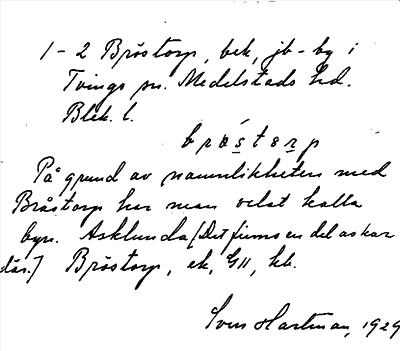 1-2 Bröstorp, bek, jb-by i
Tvings sn. Medelstads hd.
Blek. l.
bröstorp
På grund av namnlikheten med
Bråstorp har man velat kalla
byn. Asklunda [Det finns en del askar
där.] Bröstorp, ek, GII, kb.
Sven Hartman, 1929